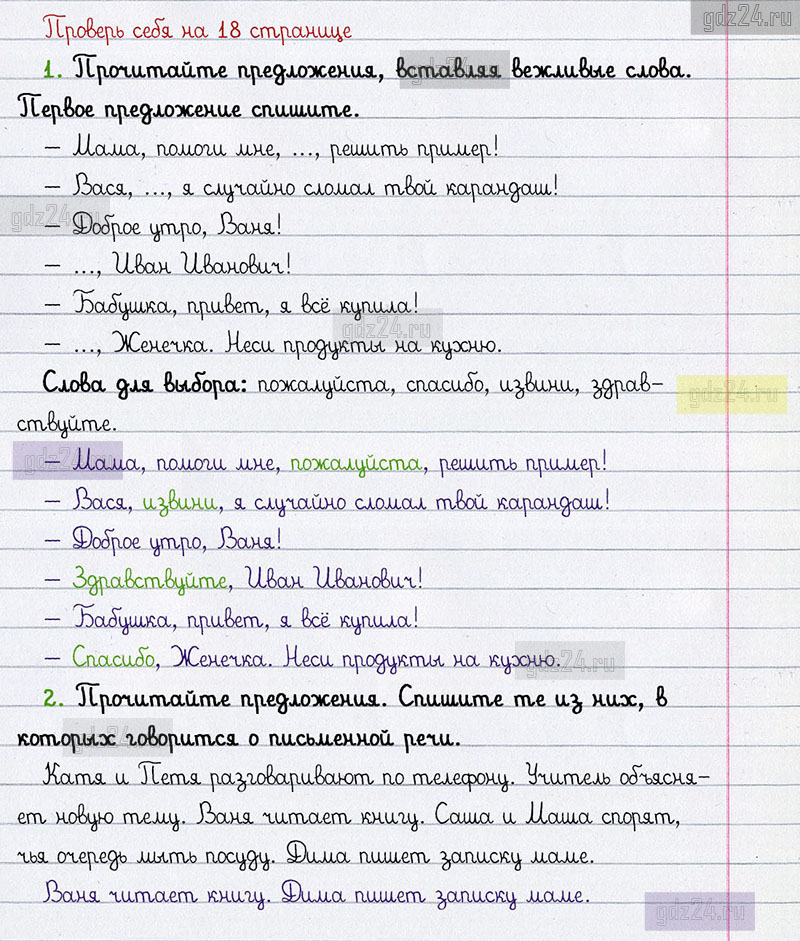 gdz24.ru
Проверь себя на 18 странице
1. Прочитайте предложения, вставляя вежливые слова.
gdz24.ru
Первое предложение спишите.
– Мама, помоги мне, ..., решить пример!
– Вася, ..., я случайно сломал твой карандаш!
gdz24.ru
– Доброе утро, Ваня!
– ..., Иван Иванович!
– Бабушка, привет, я всё купила!
gdz24.ru
– ..., Женечка. Неси продукты на кухню.
Слова для выбора: пожалуйста, спасибо, извини, здрав-
gdz24.ru
ствуйте.
gdz24.ru
– Мама, помоги мне, пожалуйста, решить пример!
– Вася, извини, я случайно сломал твой карандаш!
– Доброе утро, Ваня!
– Здравствуйте, Иван Иванович!
– Бабушка, привет, я всё купила!
– Спасибо, Женечка. Неси продукты на кухню.
gdz24.ru
2. Прочитайте предложения. Спишите те из них, в
которых говорится о письменной речи.
gdz24.ru
Катя и Петя разговаривают по телефону. Учитель объясня-
ет новую тему. Ваня читает книгу. Саша и Маша спорят,
чья очередь мыть посуду. Дима пишет записку маме.
Ваня читает книгу. Дима пишет записку маме.
gdz24.ru